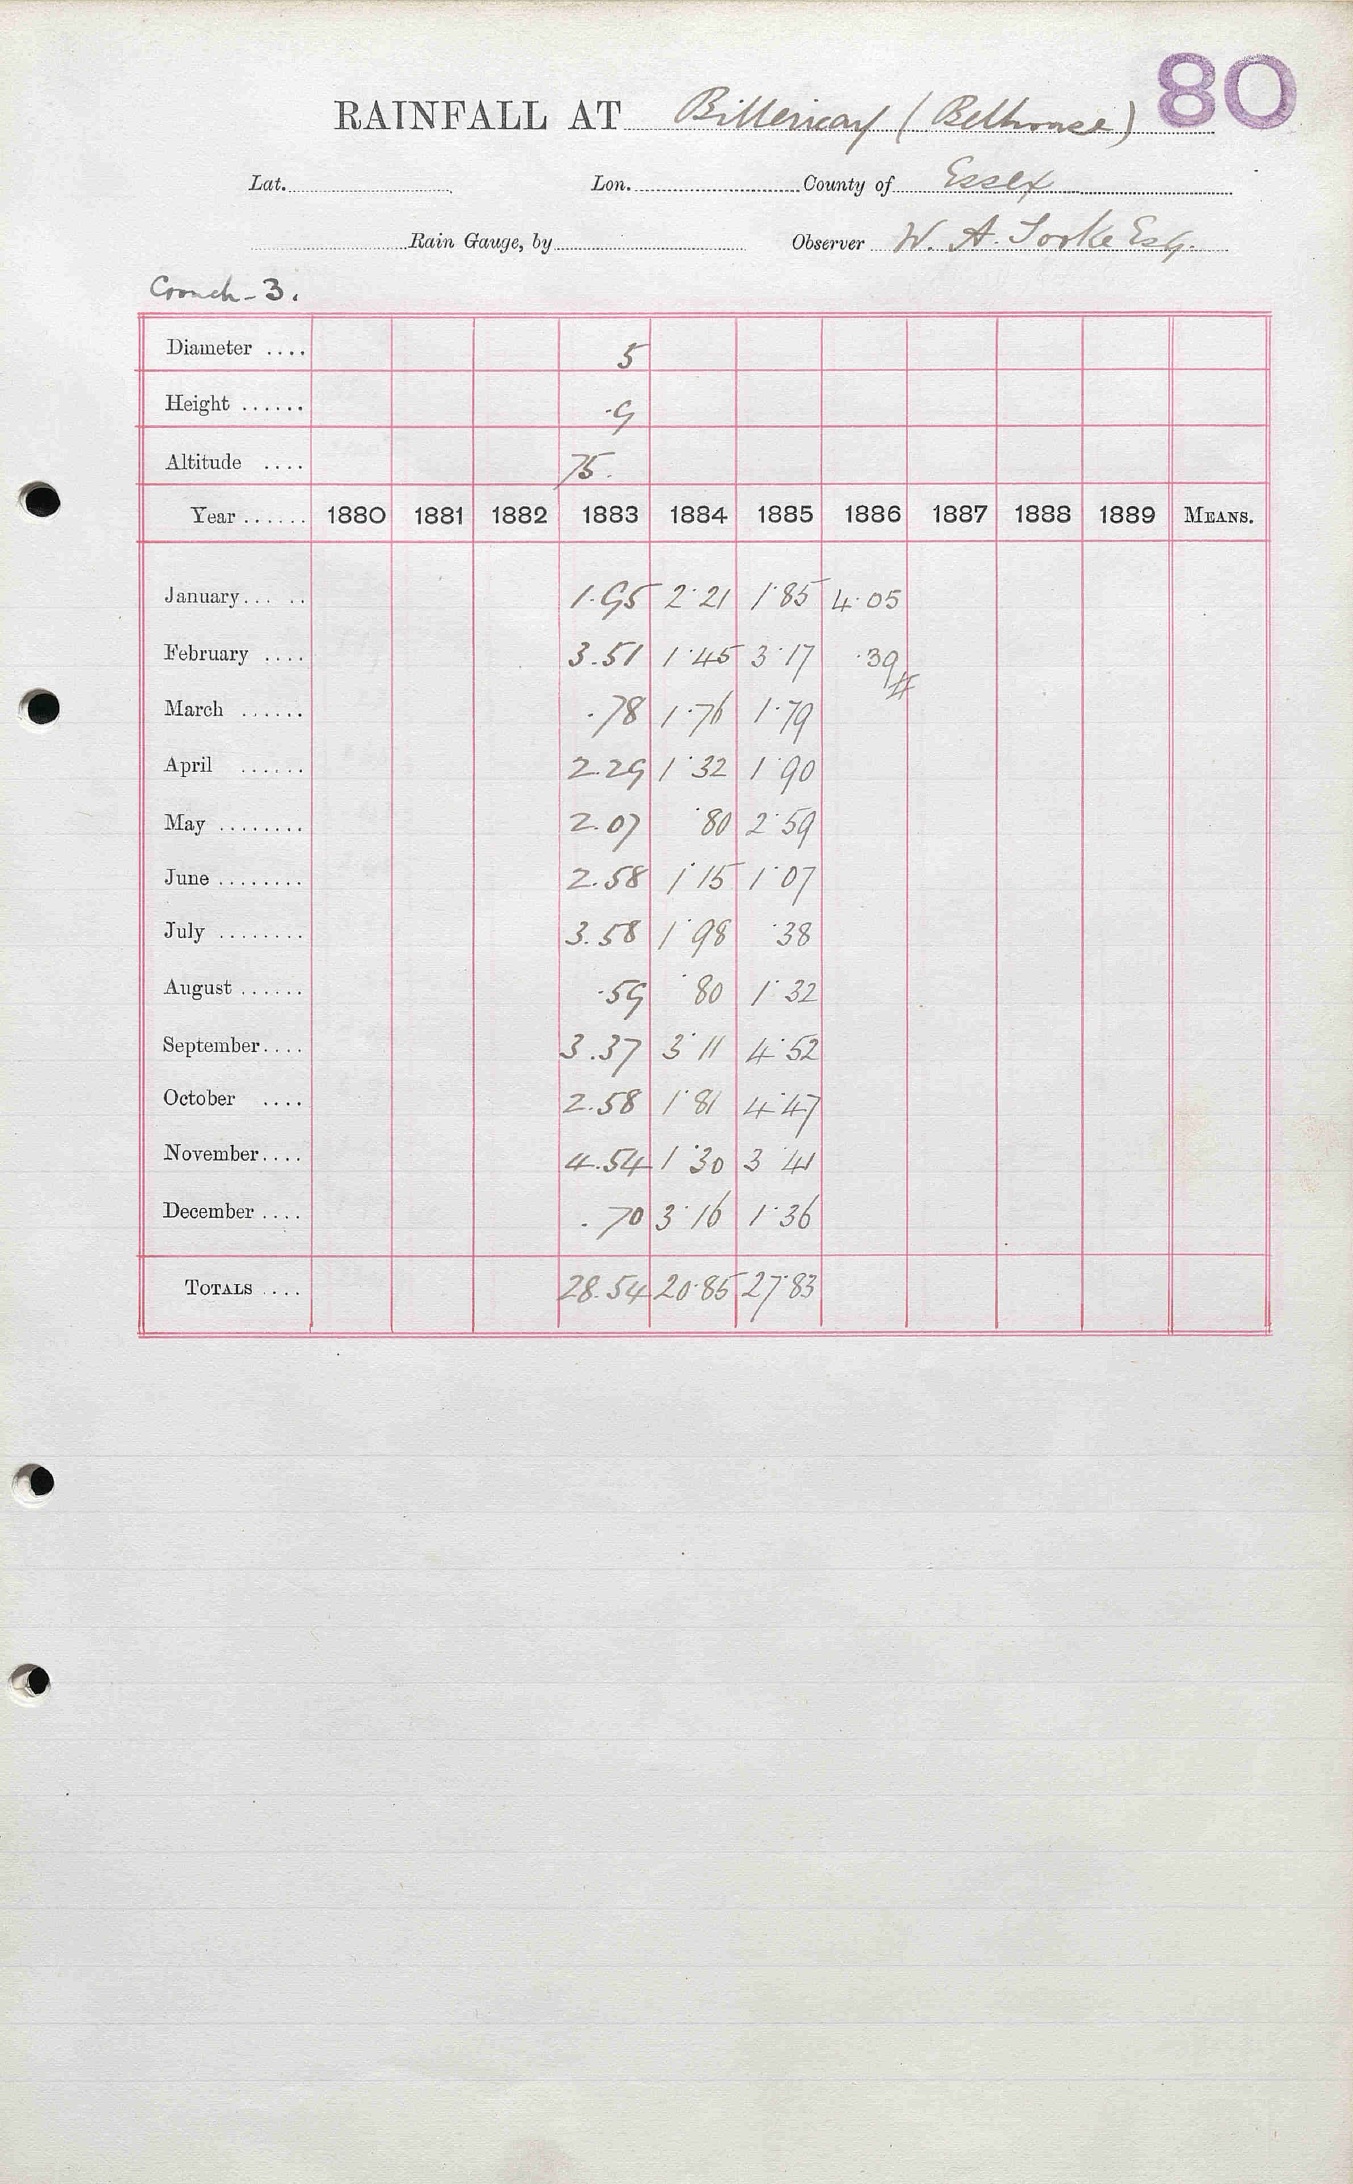 80
RAINFALL AT Billericay (Bellhouse)
Lat. Lon. County of Essex
Rain Gauge, by Observer W. A. Tooke Esq.
Crouch - 3.
Diameter .... 5
Height ...... .9
Altitude .... 75.
Year ...... 1880 1881 1882 1883 1884 1885 1886 1887 1888 1889 MEANS.
January ... .. 1.95 2.21 1.85 4.05
February .... 3.51 1.45 3.17 .39
March ...... .78 1.76 1.79
April ...... 2.29 1.32 1.90
May ........ 2.07 .80 2.59
June ........ 2.58 1.15 1.07
July ........ 3.58 1.98 .38
August ...... .59 .80 1.32
September .... 3.37 3.11 4.52
October .... 2.58 1.81 4.47
November .... 4.54 1.30 3.41
December .... .70 3.16 1.36
TOTALS .... 28.54 20.85 27.83